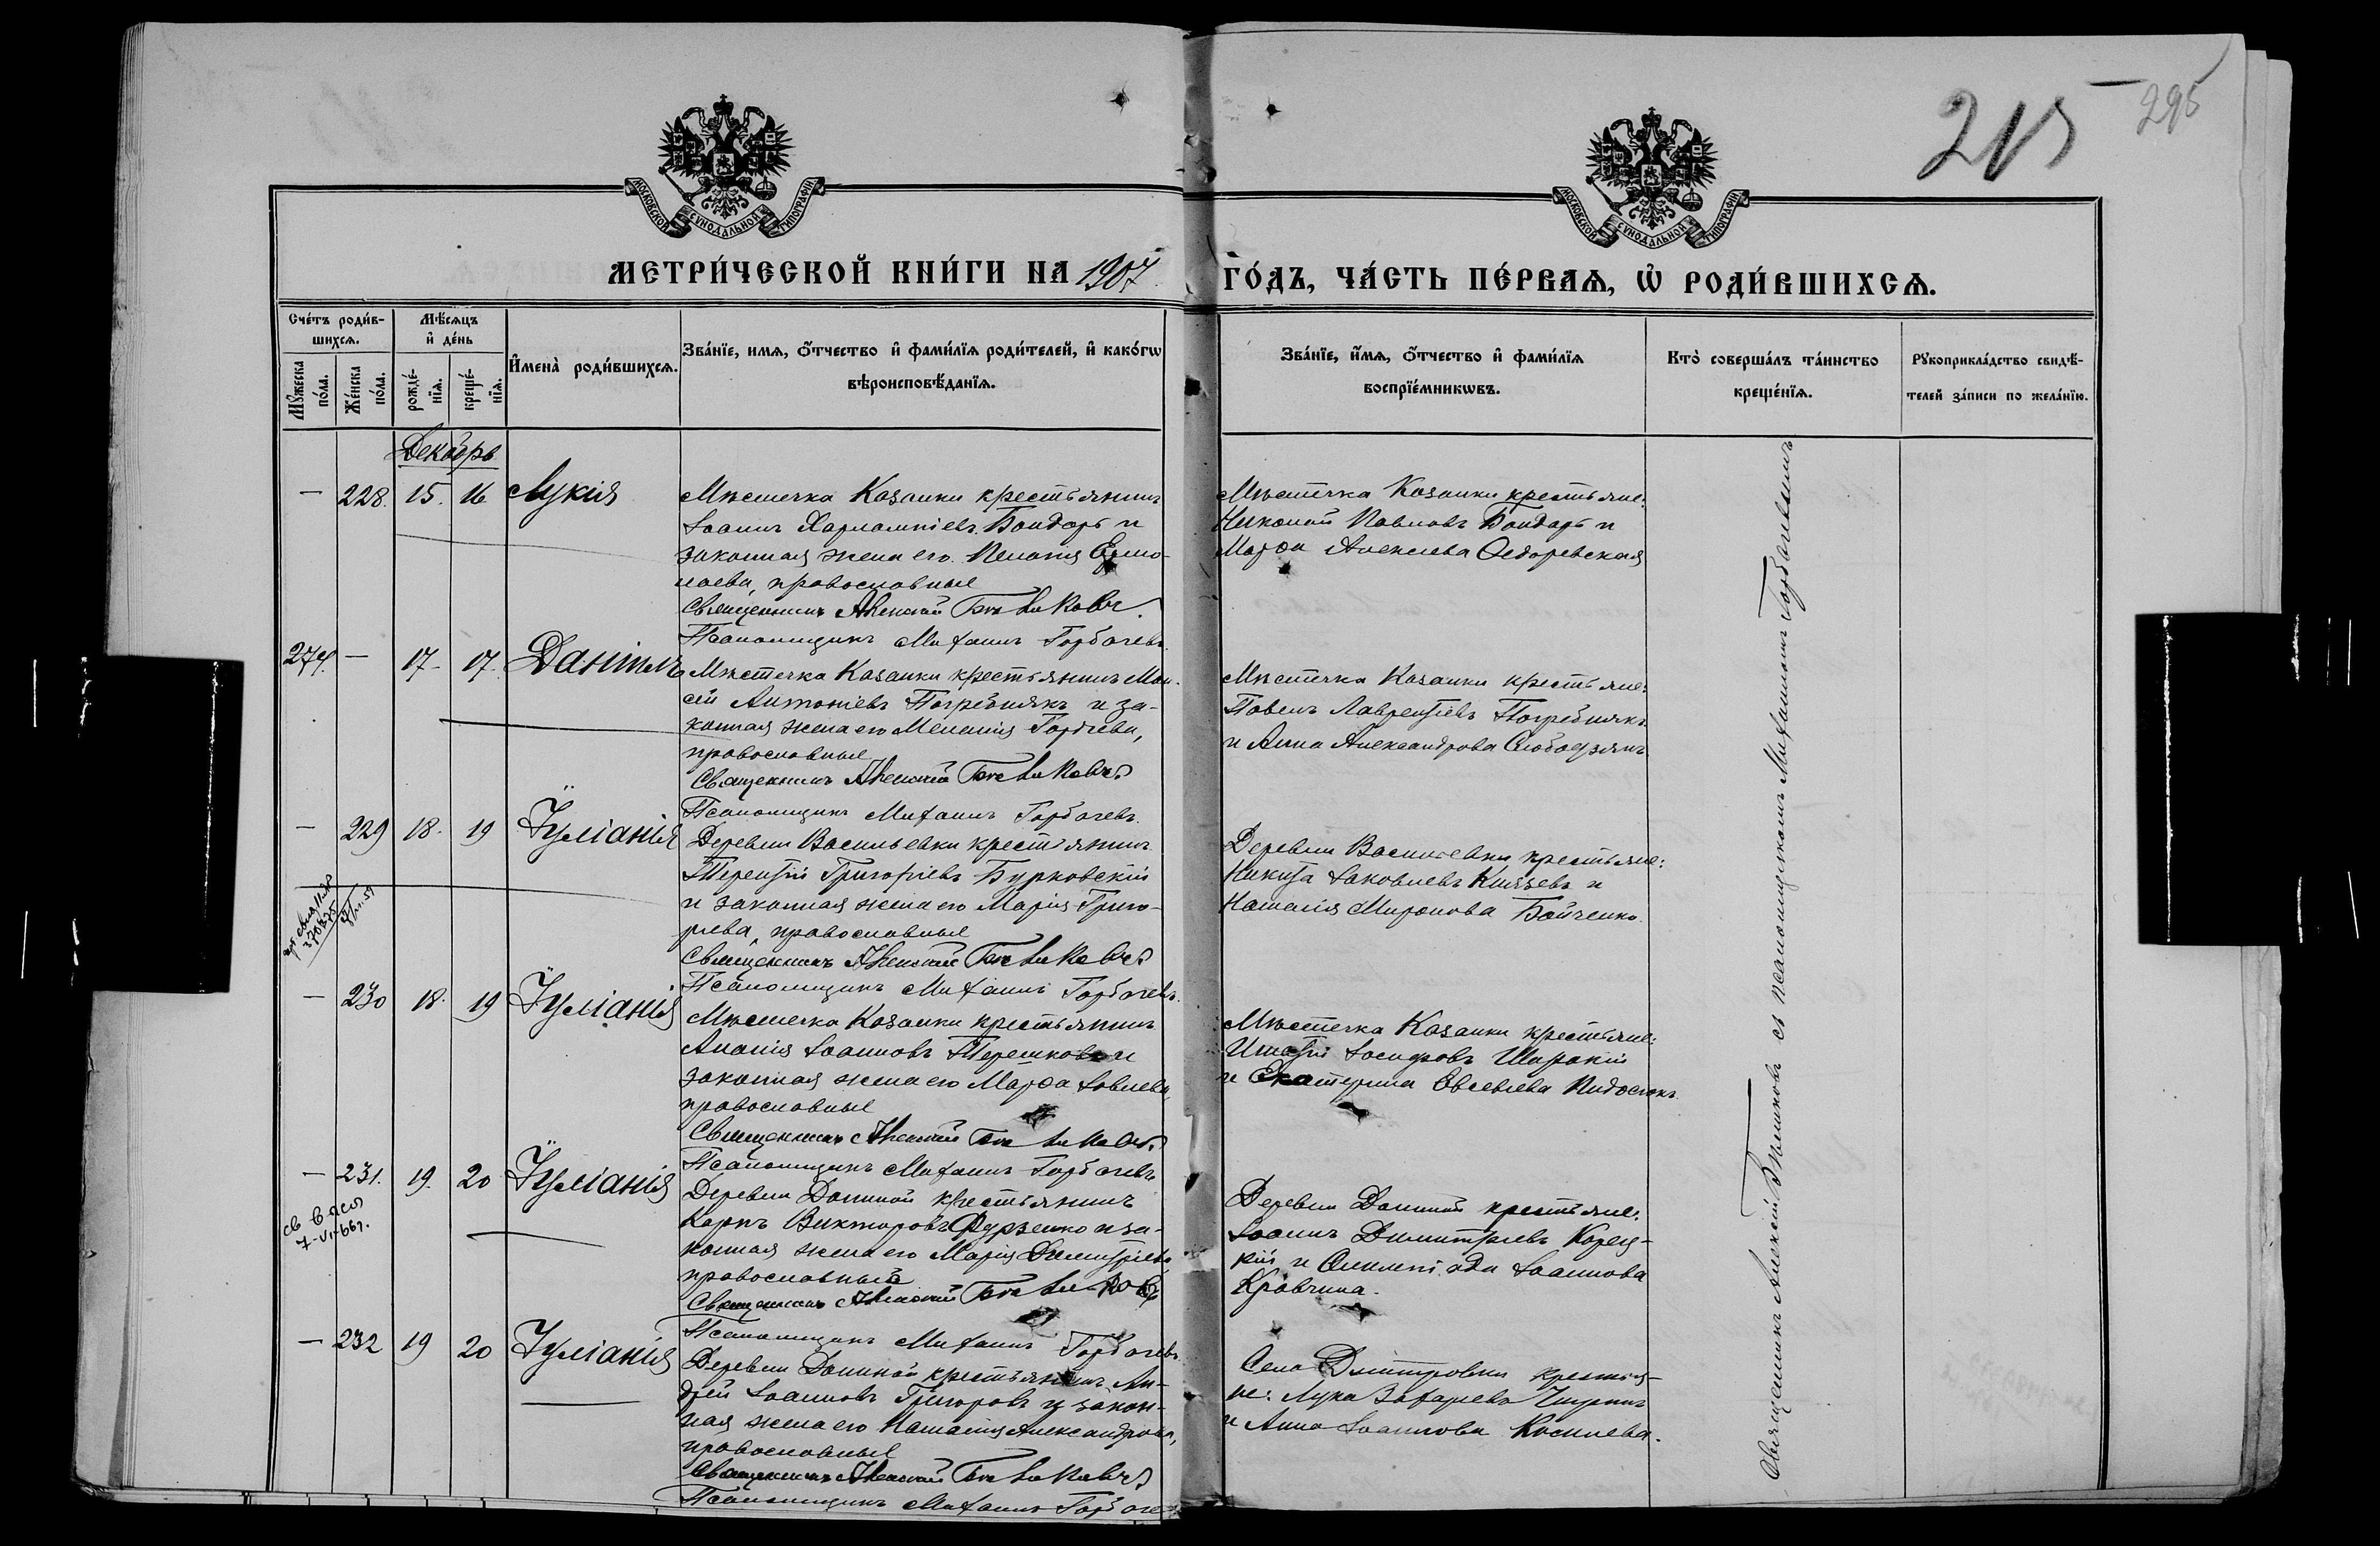 215
295
МОСКОВСКОЙ СѴНОДАЛЬНОЙ ТИПОГРАФІИ
МОСКОВСКОЙ СѴНОДАЛЬНОЙ ТИПОГРАФІИ
МЕТРИ́ЧЕСКОЙ КНИ́ГИ НА 1907
ГО́ДЪ, ЧА́СТЬ ПЕ́РВАѦ, Ѡ РОДИ́ВШИХСѦ.
Сче́тъ роди́в-
шихсѧ.
Мꙋжеска по́ла.
Же́нска по́ла.
Мѣ́сѧцъ
и де́нь
рожде́-
нїѧ.
креще́-
нїѧ.
Имена̀ роди́вшихсѧ.
Зва́нїе, имѧ, ѻ҆́тчество и фами́лїѧ роди́телей, и како́гѡ
вѣроисповѣ́данїѧ.
Зва́нїе, и́мѧ, ѻ҆́тчество и фами́лїѧ
воспрїе́мникѡвъ.
Кто̀ соверша́лъ та́инство
креще́нїѧ.
Рꙋкоприкла́дство свидѣ́-
телей за́писи по жела́нїю.
Декабрь
— 228. 15. 16 Лукія
Мѣстечка Казанки крестьянинъ
Іоаннъ Харлампіевъ Бондарь и
законная жена его Пелагія Ермо-
лаева, православные
Священникъ Алексий
Псаломщикъ Михаилъ Горбачевъ.
Мѣстечка Казанки крестьяне:
Николай Павловъ Бондарь и
Марфа Алексиева Федоревская
274. — 17. 17. Даніилъ
Мѣстечка Казанки крестьянинъ Мои-
сей Антоніевъ Погребнякъ и за-
конная жена его Меланія Гордіева,
православные
Священникъ Алексий
Псаломщикъ Михаилъ Горбачевъ.
Мѣстечка Казанки крестьяне:
Павелъ Лаврентіевъ Погребнякъ
и Анна Александрова Слободзянъ
— 229 18. 19 Іуліанія
Деревни Васильевки крестьянинъ
Терентій Григоріевъ Бурковскій
и законная жена его Марія Григо-
рьева, православные
Священникъ Алексий
Псаломщикъ Михаилъ Горбачевъ.
Деревни Васильевки крестьяне:
Никита Іаковлевъ Князевъ и
Наталія Миронова Бойченко.
370875
— 230 18. 19 Іуліанія
Мѣстечка Казанки крестьянинъ
Ананія Іоанновъ Терешков и
законная жена его Марфа Іовлева
православные
Священникъ Алексий
Псаломщикъ Михаилъ Горбачевъ
Мѣстечка Казанки крестьяне:
Игнатій Іосифовъ Широкій
и Екатерина Евсевіева
— 231. 19. 20 Іуліанія
7-VI-66г.
Деревни Долиной крестьянинъ
Карпъ Викторовъ Фурзенко и за-
конная жена его Марія Димитріева
православные
Священникъ Алексий
Псаломщикъ Михаилъ Горбачевъ.
Деревни Долиной крестьяне:
Іоаннъ Димитріевъ Корец-
кій и Олимпіада Іоаннова
Кравчина.
— 232 19 20 Іуліанія
Деревни Долиной крестьянинъ Ан-
дрей Іоанновъ Григоровъ и закон-
ная жена его Наталія Александрова,
православные
Священникъ Алексий
Псаломщикъ Михаилъ Горбачевъ
Села Дмитровки крестья-
не: Лука Захарьевъ
и Анна Іоаннова Косилева.
Священникъ Алексій съ псаломщикомъ Михаиломъ Горбачевымъ